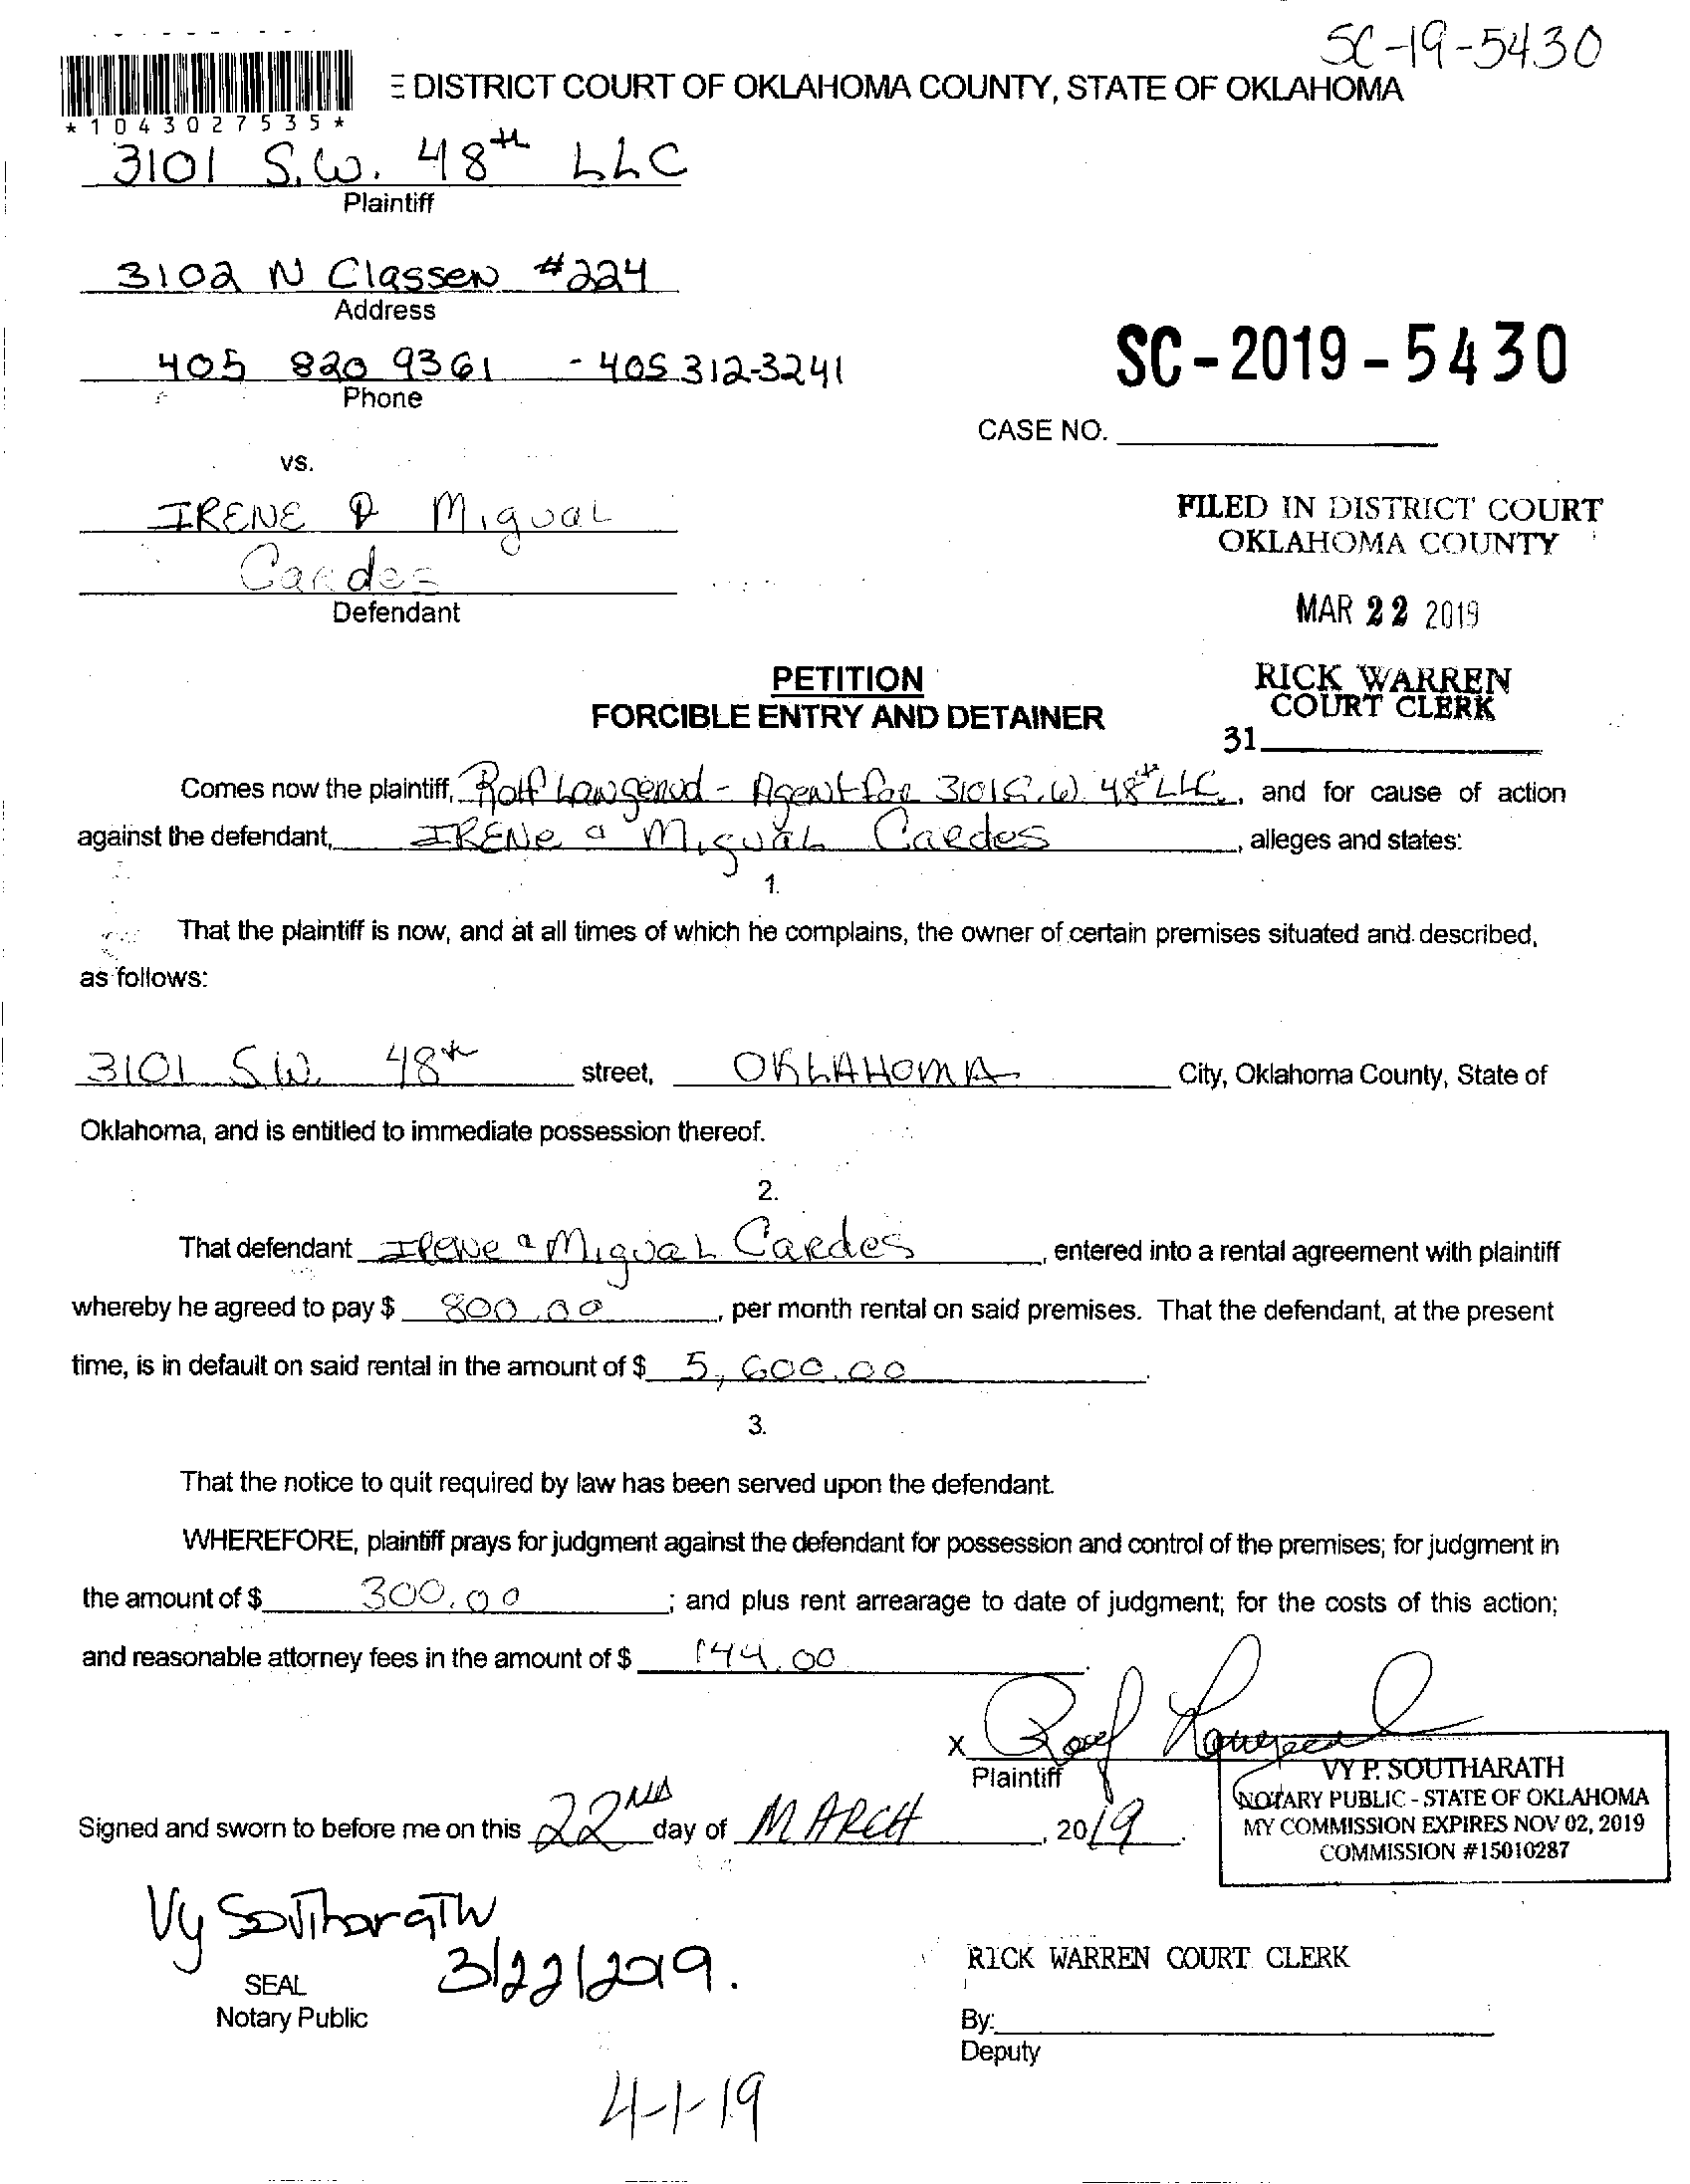 SC-19-5430
DISTRICT COURT OF OKLAHOMA COUNTY, STATE OF OKLAHOMA
*1043027535*
3101 S.W. 48th LLC
Plaintiff
3102 N Classen #224
Address
405 820 9361 - 405 312-3241
Phone
SC-2019-5430
CASE NO.
vs.
IRENE & Migual
Cardes
Defendant
FILED IN DISTRICT COURT
OKLAHOMA COUNTY
MAR 22 2019
RICK WARREN
COURT CLERK
31
PETITION
FORCIBLE ENTRY AND DETAINER
Comes now the plaintiff, Rolf - Agent for 3101 S.W. 48th LLC, and for cause of action
against the defendant, IRENe & Migual Cardes, alleges and states:
1.
That the plaintiff is now, and at all times of which he complains, the owner of certain premises situated and described,
as follows:
3101 S.W. 48th street, OKLAHOMA City, Oklahoma County, State of
Oklahoma, and is entitled to immediate possession thereof.
2.
That defendant Irene & Migual Cardes, entered into a rental agreement with plaintiff
whereby he agreed to pay $ 800.00, per month rental on said premises. That the defendant, at the present
time, is in default on said rental in the amount of $ 5,600.00.
3.
That the notice to quit required by law has been served upon the defendant.
WHEREFORE, plaintiff prays for judgment against the defendant for possession and control of the premises; for judgment in
the amount of $ 300.00; and plus rent arrearage to date of judgment; for the costs of this action;
and reasonable attorney fees in the amount of $ 144.00.
X
Plaintiff
VY P. SOUTHARATH
NOTARY PUBLIC - STATE OF OKLAHOMA
MY COMMISSION EXPIRES NOV 02, 2019
COMMISSION #15010287
Signed and sworn to before me on this 22ND day of MARCH, 2019.
Vy Southarath
3/22/2019.
SEAL
Notary Public
RICK WARREN COURT CLERK
By:
Deputy
4-1-19